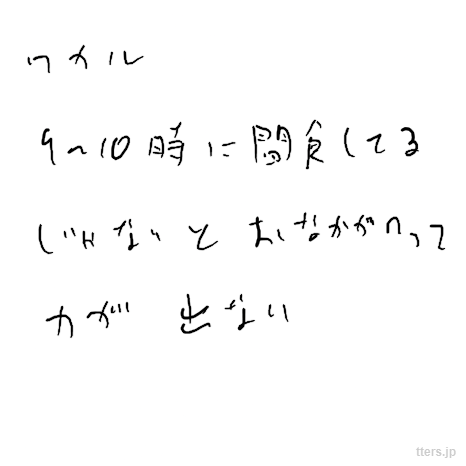 ワカル
9~10時に間食してる
じゃないとおなかがへって
力が出ない
tters.jp